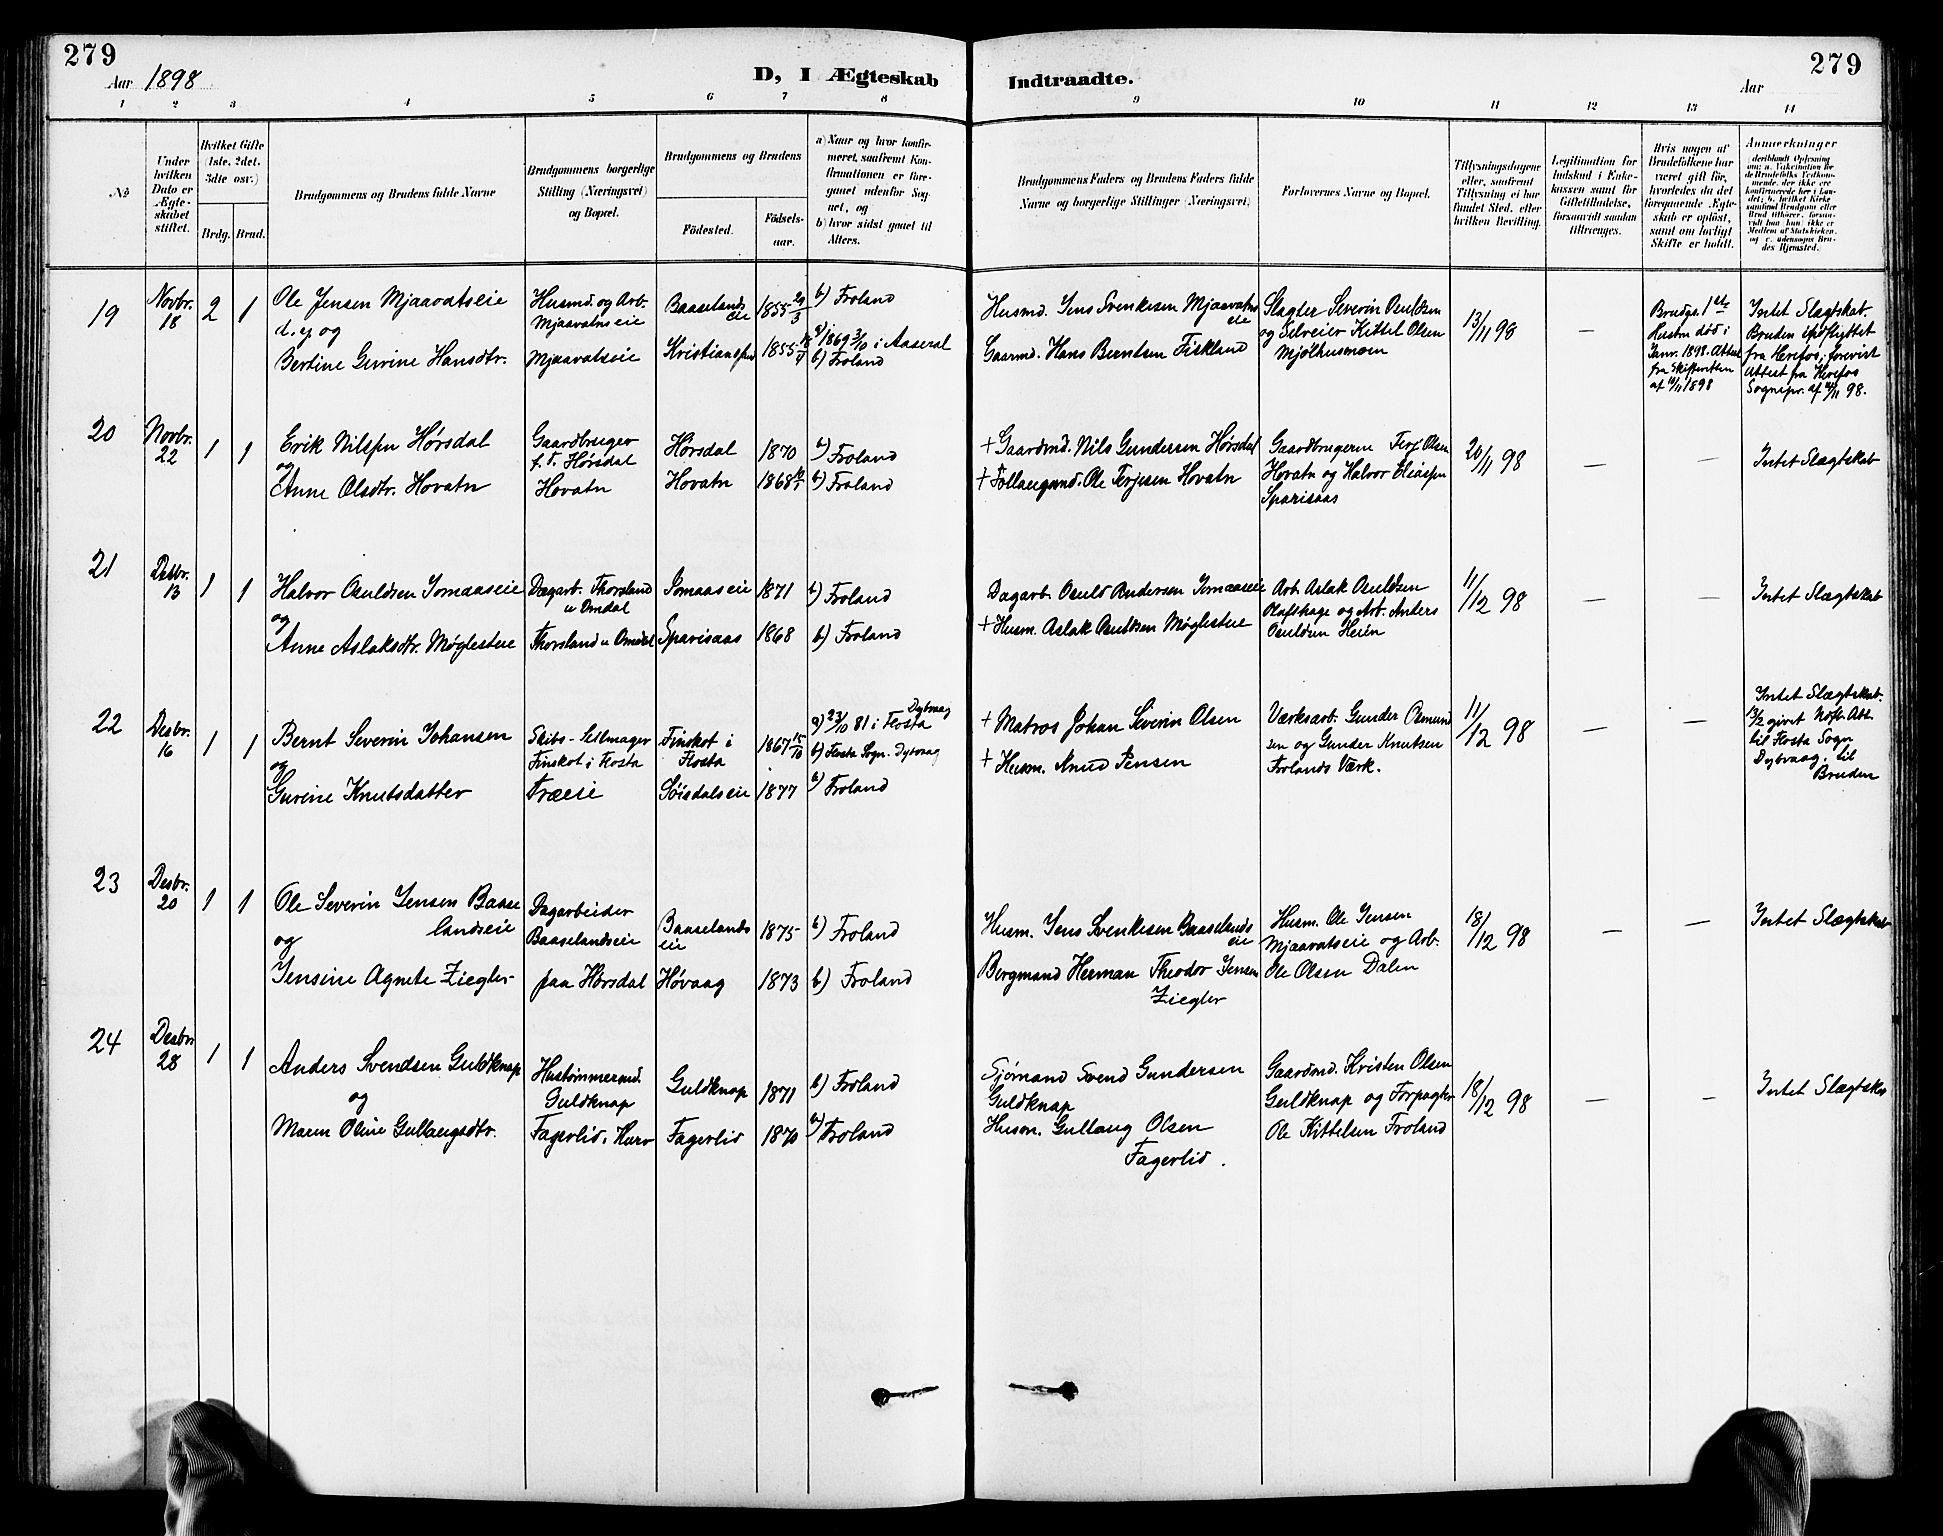 279
279
Aar 1898
D, I Ægteskab
Indtraadte.
Aar
1 2 3 4 5 6 7 8 9 10 11 12 13 14
No
Under hvilken Dato er Ægteskabet stiftet.
Hvilket Gifte (1ste, 2det, 3die osv.)
Brdg. Brud.
Brudgommens og Brudens fulde Navne
Brudgommens borgerlige Stilling (Næringsvei) og Bopæl.
Brudgommens og Brudens
Födested.
Födselsaar.
a) Naar og hvor konfirmeret, saafremt Konfirmationen er foregaaet udenfor Sognet, og
b) hvor sidst gaaet til Alters.
Brudgommens Faders og Brudens Faders fulde Navne og borgerlige Stillinger (Næringsvei)
Forlovernes Navne og Bopæl.
Tillysningsdagene eller, saafremt Tillysning ei har fundet Sted, efter hvilken Bevilling.
Legitimation for Indskud i Enkekassen samt for Giftetilladelse, forsaavidt saadan tiltrænges.
Hvis nogen af Brudefolkene har været gift før, hvorledes da det foregaaende Ægteskab er opløst, samt om lovligt Skifte er holdt.
Anmerkninger
19 Novbr. 18 2 1
Ole Jensen Mjaavatseie
d.y og
Bertine Gurine Hansdtr.
Husmd. og Arb.
Mjaavatnseie
Mjaavatseie
Baaselandseie 1855 29/3
1855
b) Froland
a) 1869 3/10 i Aaseral
b) Froland
Husmd. Jens Svenkesen Mjaavatneie
Gaarmd. Hans Berntsen Fiskland
Slagter Severin Osuldsen
og Selveier Kittel Olsen
Mjølhusmoen
13/11 98
—
Brudg. 1ste
Hustru død i
Janr. 1898. Attest
fra Skifteretten
af 11/11 1898
Intet Slægtskab.
Bruden indflyttet
fra Herefos; forevist
Attest fra Herefos
Sognepr. af 4/11 98.
20 Novbr. 22 1 1
Erik Nilsen Hørsdal
og
Anne Olsdtr. Hovatn
Gaardbruger
f. T. Hørsdal
Hovatn
Hørsdal 1870
Hovatn 1868
a) Froland
b) Froland
+ Gaardmd. Nils Gundersen Hørsdal
+ Føllaugsmd. Ole Terjesen Hovatn
Gaardbrugerne Terj Olsen
Hovatn og Halvor Eliasen
Sparisaas
20/11 98
—
—
Intet Slægtskab
21 Desbr. 13 1 1
Halvor Osuldsen Jomaaseie
og
Anne Aslaksdtr. Møglestue
Dagarb. Thorsland
u Omdal
Thorsland u Omdal
Jomaaseie 1871
Sparisaas 1868
b) Froland
b) Froland
Dagarb. Osuld Andersen Jomaaseie
+ Husm. Aslak Osuldsen Møglestue
Arb. Aslak Osuldsen
Olafshage og Arb. Anders
Osuldsen Heien
11/12 98
—
—
Intet Slægtskab
22 Desbr. 16 1 1
Bernt Severin Johansen
og
Gurine Knutsdatter
Skibs-Seilmager
Finskot i Flosta
Træeie
Finskot i
Flosta 1867 15/10
Seisdalseie 1877
a) 23/10 81 i Flosta Dybvaag
b) Flosta Sogn. Dybvaag
b) Froland
+ Matros Johan Severin Olsen
+ Husm. Knud Jensen
Værksarb. Gunder Osmundsen og Gunder Knutsen
Frolands Værk.
11/12 98
—
—
Intet Slægtskab.
13/2 givet Nøft. Att.
til Flosta Sogn
Dybvaag. til
Bruden
23 Desbr. 20 1 1
Ole Severin Jensen Baaselandseie
og
Jensine Agnete Ziegler
Dagarbeider
Baaselandseie
paa Hørsdal
Baaselandseie 1875
Høvaag 1873
b) Froland
b) Froland
Husm. Jens Svenkesen Baaselandseie
Bergmand Herman Theodor Jensen
Ziegler
Husm. Ole Jensen
Mjaavatseie og Arb.
Ole Olsen Dalen
18/12 98
—
—
Intet Slægtskab
24 Desbr. 28 1 1
Anders Svendsen Guldknap
og
Maren Oline Gullaugsdtr.
Hustømmermd.
Guldknap
Fagerlid. Hurv
Guldknap 1871
Fagerlid 1870
b) Froland
b) Froland
Sjømand Svend Gundersen
Guldknap
Husm. Gullaug Olsen
Fagerlid.
Gaardmd. Kristen Olsen
Guldknap og Forpagter
Ole Kittelsen Froland
18/12 98
—
—
Intet Slægtskab